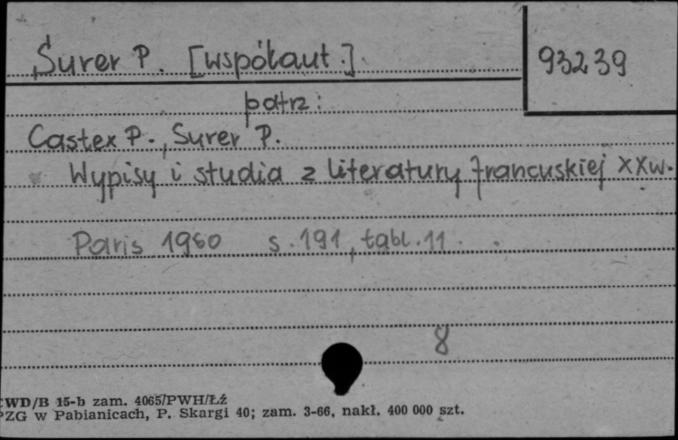 Surer P. [współaut.]
93239
patrz:
Castex P., Surer P.
Wypisy i studia z literatury francuskiej XX w.
Paris 1960 s. 191, tabl. 11.
8
CWD/B 15-b zam. 4065/PWH/Łź
PZG w Pabianicach, P. Skargi 40; zam. 3-66, nakł. 400 000 szt.